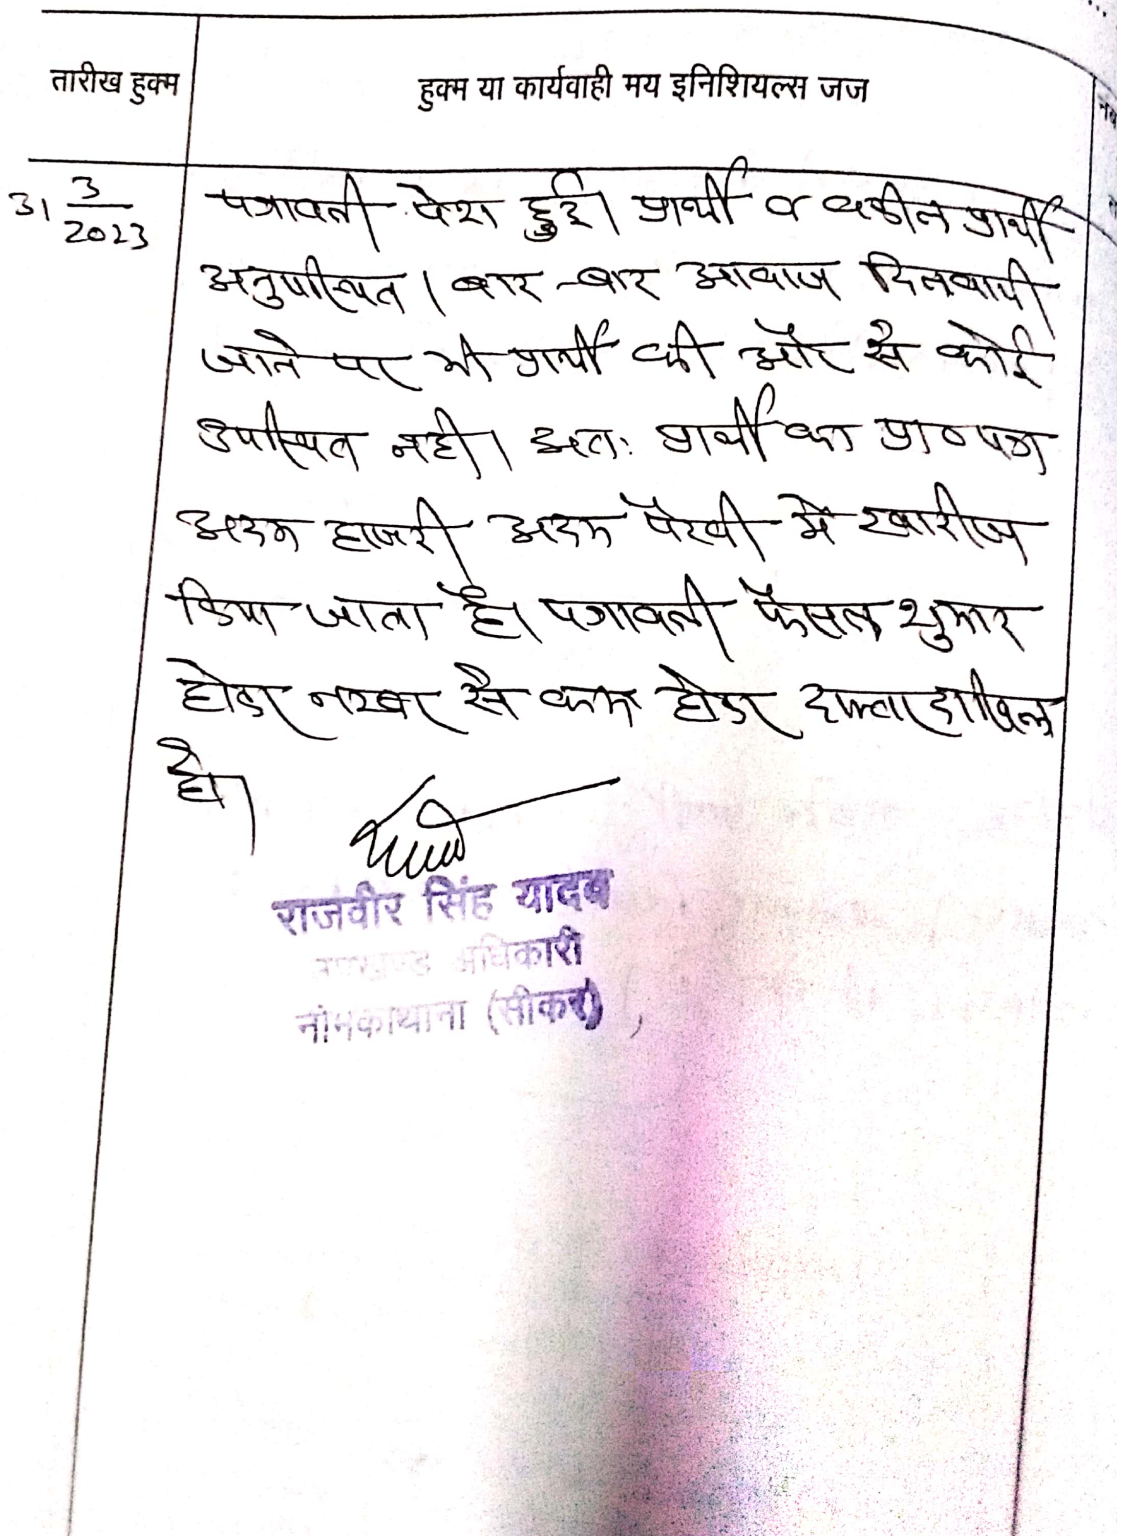 तारीख हुक्म
हुक्म या कार्यवाही मय इनिशियल्स जज
31 3/2023
पत्रावली पेश हुई। प्रार्थी व वकील प्रार्थी
अनुपस्थित। बार-बार आवाज दिलवायी
जाने पर भी प्रार्थी की ओर से कोई
उपस्थित नही। अतः प्रार्थी का प्रा० पत्र
अदम हाजरी अदम पैरवी में खारीज
किया जाता है। पत्रावली फैसल शुमार
होकर नम्बर से कम होकर दफ्तर दाखिल
हो।
राजवीर सिंह यादव
उपखण्ड अधिकारी
नीमकाथाना (सीकर)